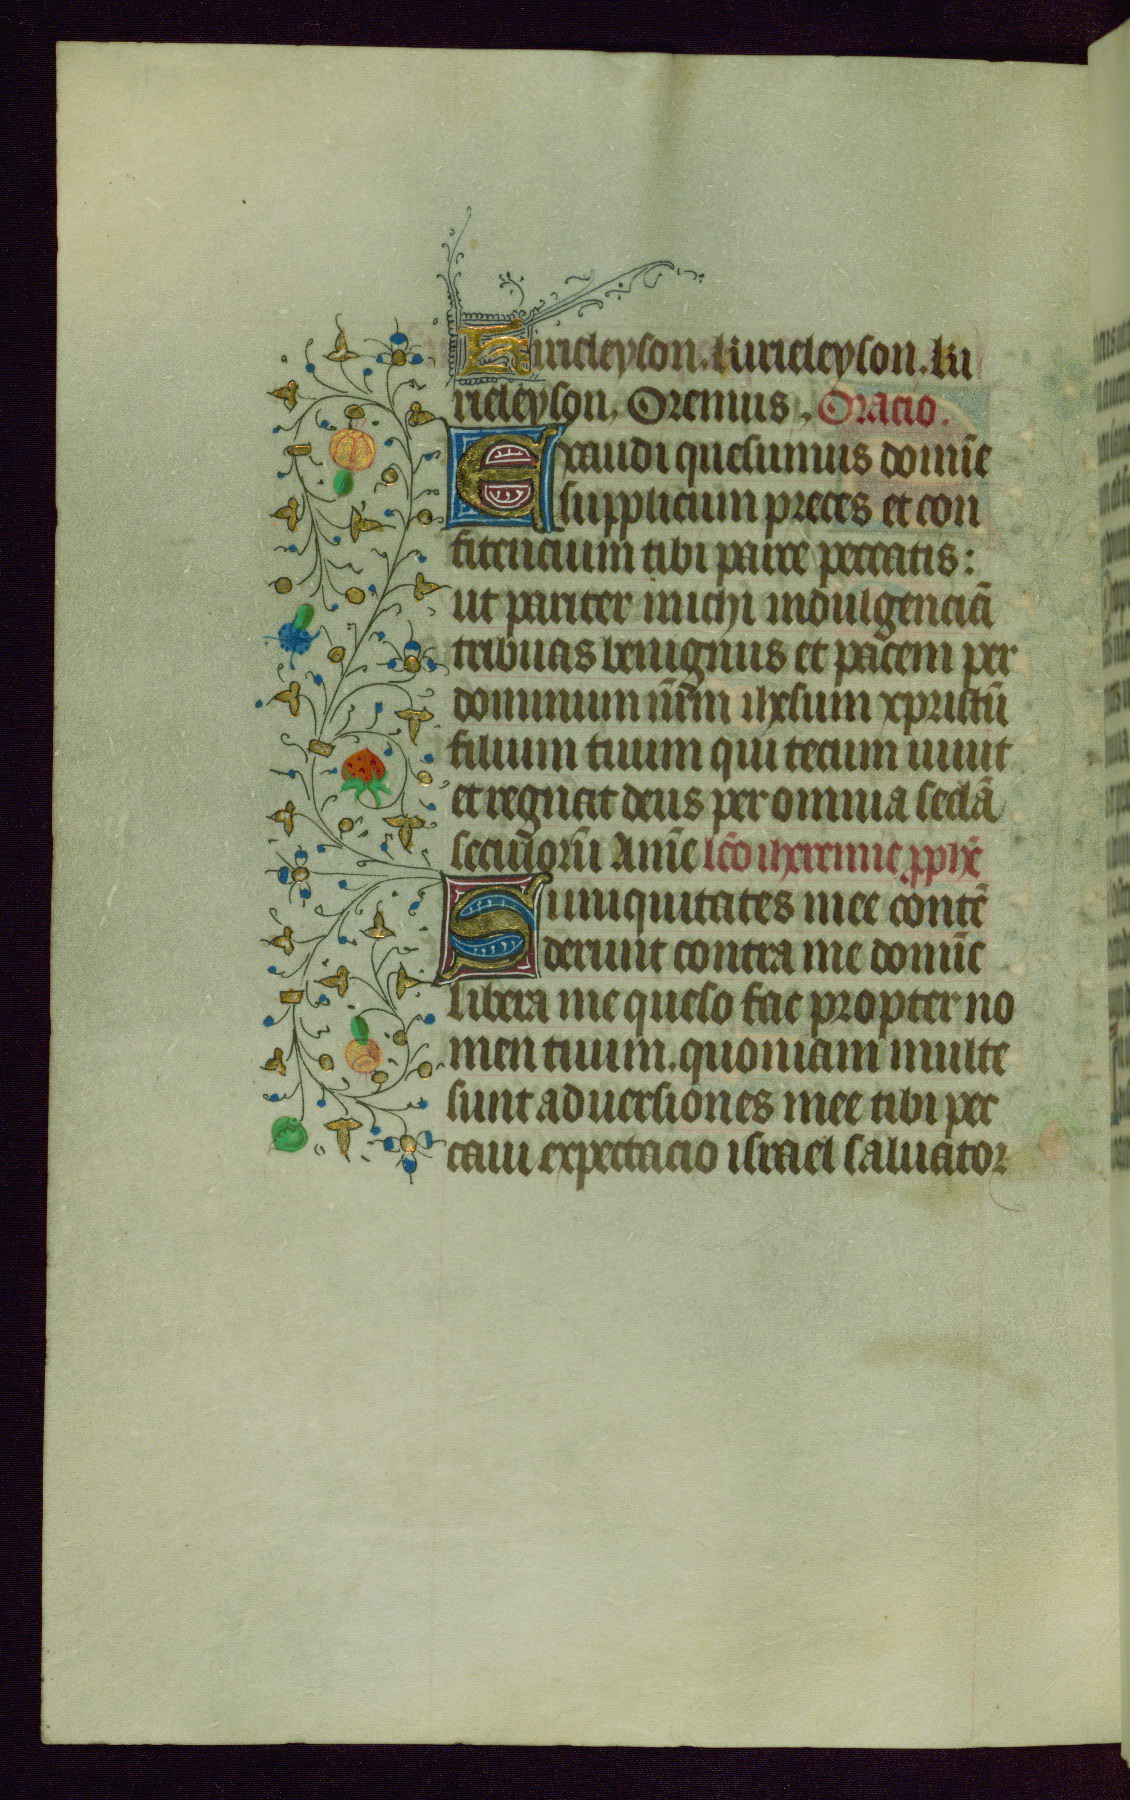 Kirieleyson. kirieleyson. ki
rieleyson. Oremus. Oracio.
Exaudi quesumus domīe
supplicium preces et con
fitencium tibi parce peccatis:
ut pariter michi indulgenciā
tribuas benignus et pacem per
dominum nr̄m ihesum xpristū
filium tuum qui tecum uiuit
et regnat deus per omnia seclā
seculorū Amē lcō iheremie pphē
Si iniquitates mee contē
derunt contra me domīe
libera me queso fac propter no
men tuum. quoniam multe
sunt aduersiones mee tibi pec
caui expectacio israel saluator